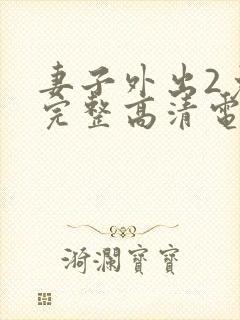 妻子外出2
完整高清電
漪瀾寶寶